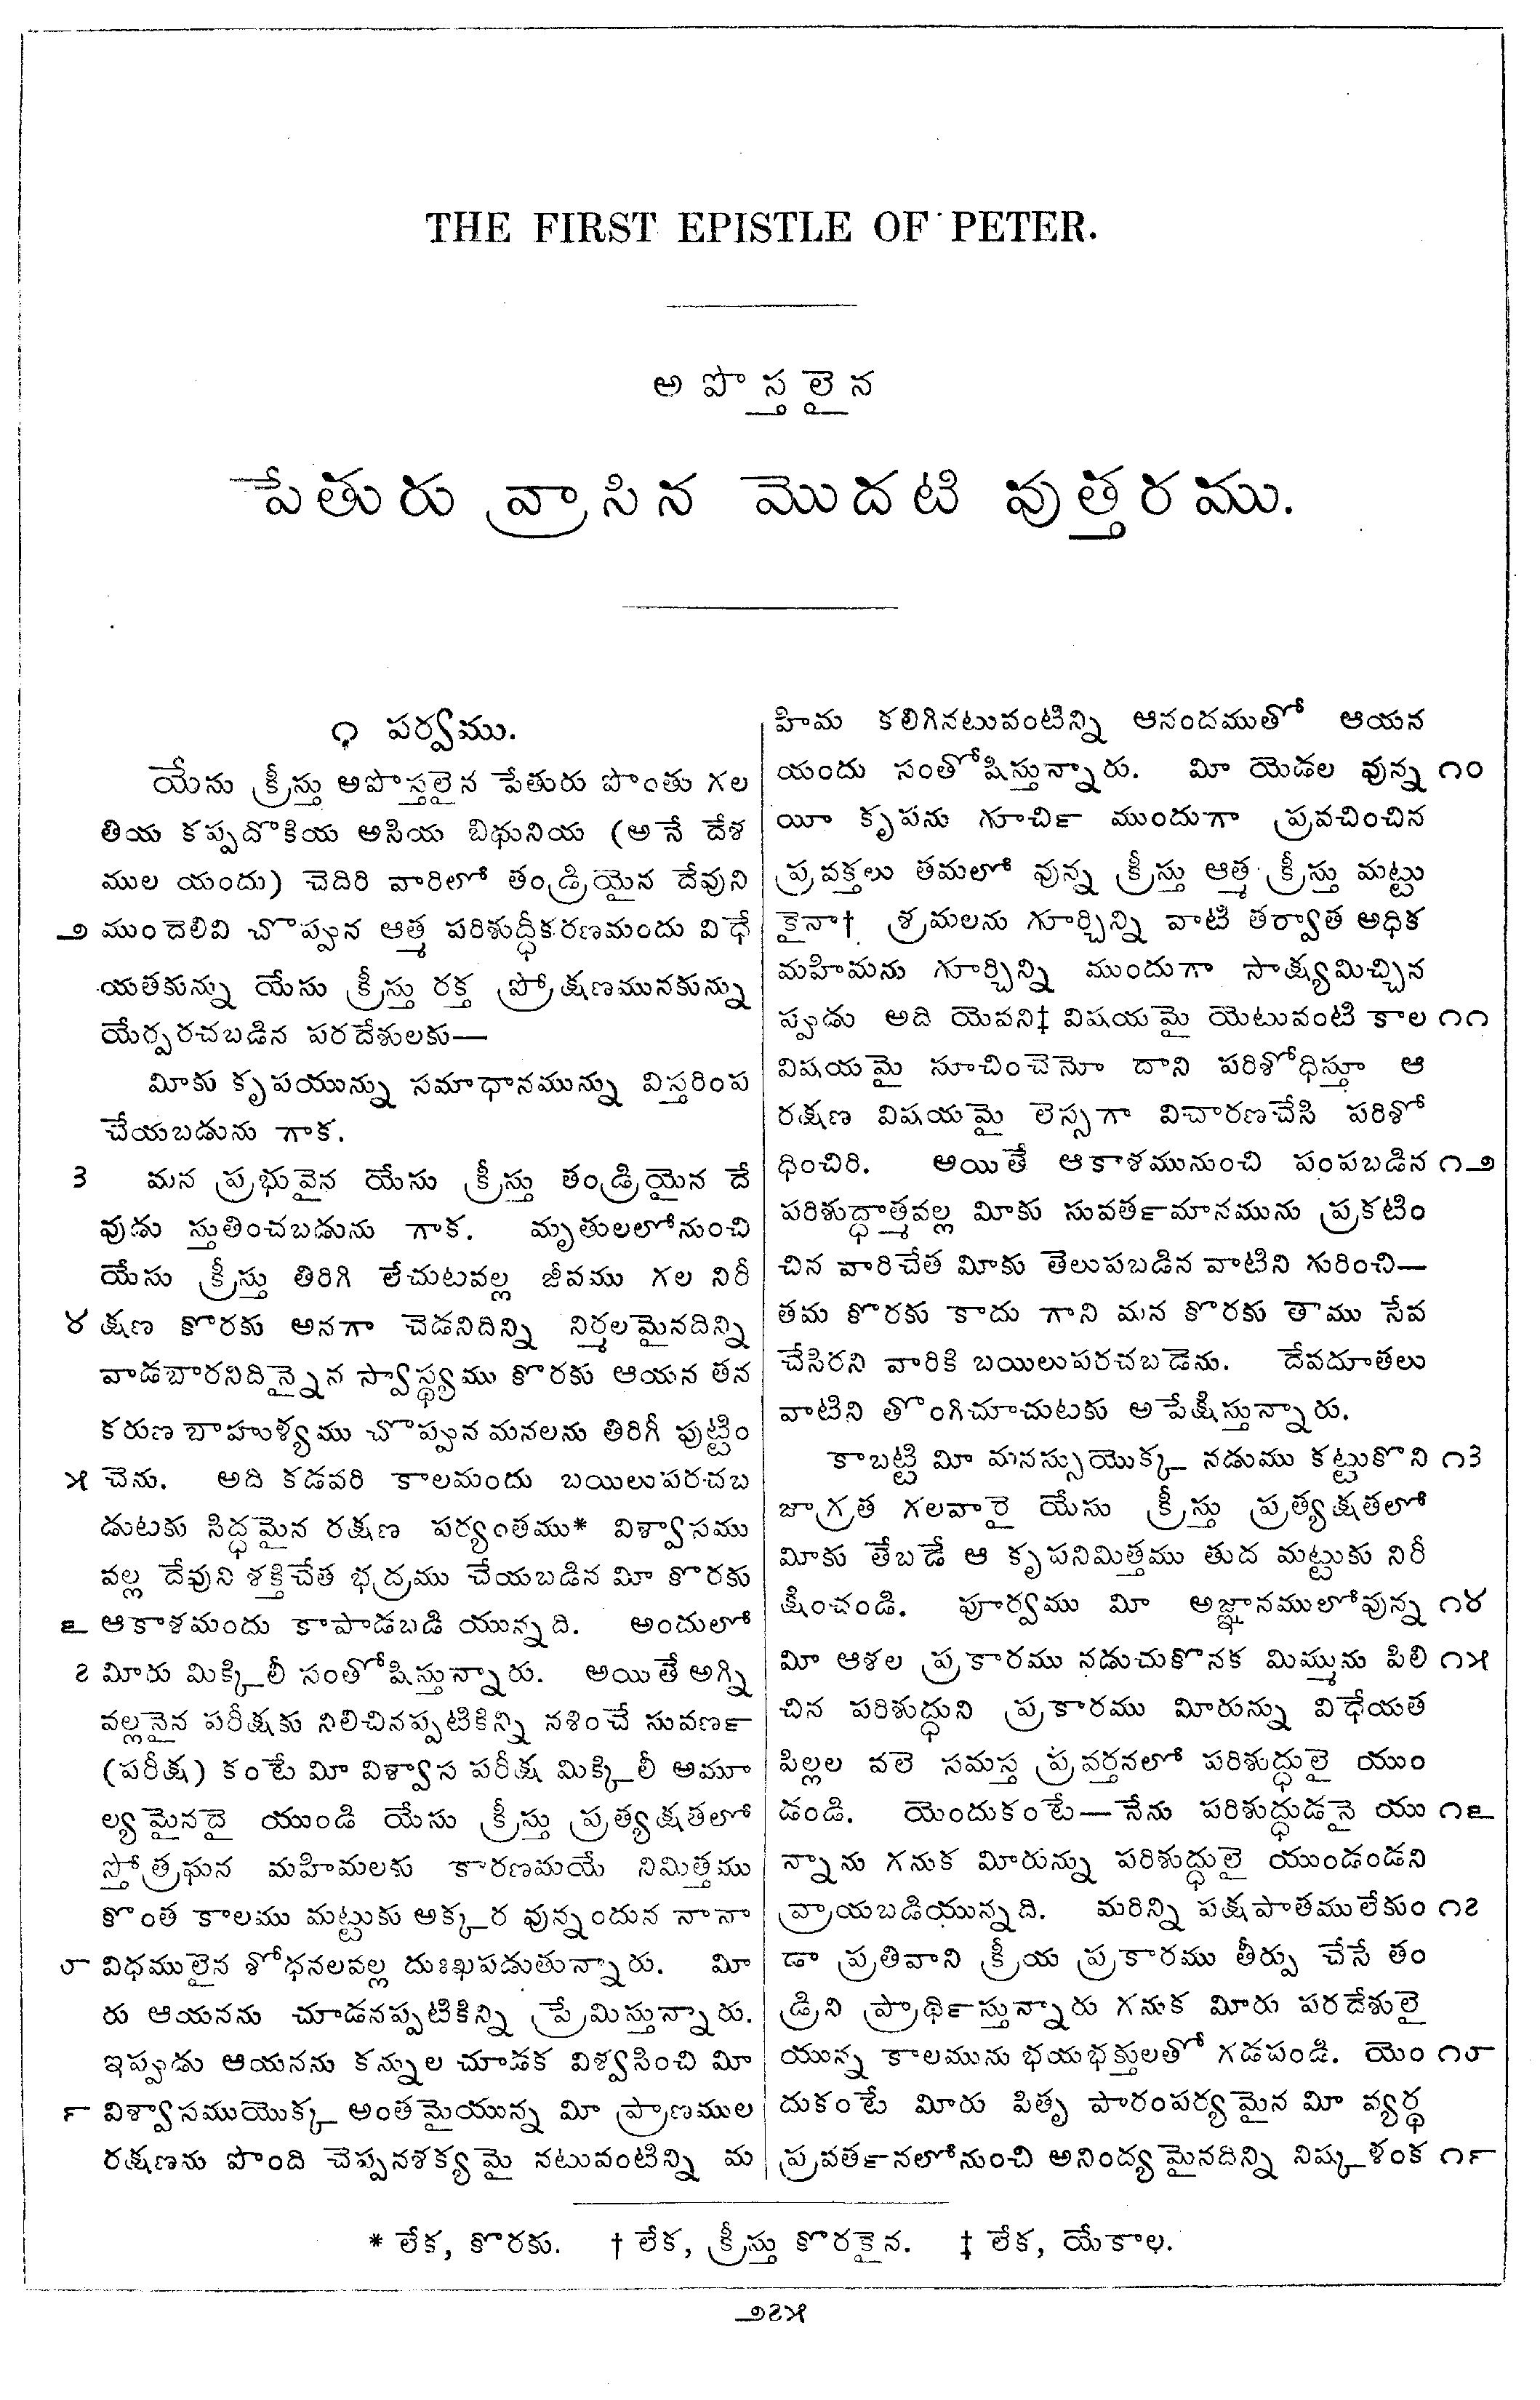 THE FIRST EPISTLE OF PETER.
అపొస్తలైన
పేతురు వ్రాసిన మొదటి వుత్తరము.
౧ పర్వము.
యేసు క్రీస్తు అపొస్తలైన పేతురు పొంతు గల
తియ కప్పదొకియ అసియ బిథునియ (అనే దేశ
ముల యందు) చెదిరి వారిలో తండ్రియైన దేవుని
౨ ముందెలివి చొప్పున ఆత్మ పరిశుద్ధీకరణమందు విధే
యతకున్ను యేసు క్రీస్తు రక్త ప్రోక్షణమునకున్ను
యేర్పరచబడిన పరదేశులకు—
మీకు కృపయున్ను సమాధానమున్ను విస్తరింప
చేయబడును గాక.
౩ మన ప్రభువైన యేసు క్రీస్తు తండ్రియైన దే
వుడు స్తుతించబడును గాక. మృతులలోనుంచి
యేసు క్రీస్తు తిరిగి లేచుటవల్ల జీవము గల నిరీ
౪ క్షణ కొరకు అనగా చెడనిదిన్ని నిర్మలమైనదిన్ని
వాడబారనిదిన్నైన స్వాస్థ్యము కొరకు ఆయన తన
కరుణ బాహుళ్యము చొప్పున మనలను తిరిగీ పుట్టిం
౫ చెను. అది కడవరి కాలమందు బయిలుపరచబ
డుటకు సిద్ధమైన రక్షణ పర్యంతము* విశ్వాసము
వల్ల దేవుని శక్తిచేత భద్రము చేయబడిన మీ కొరకు
౬ ఆకాశమందు కాపాడబడి యున్నది. అందులో
౭ మీరు మిక్కిలీ సంతోషిస్తున్నారు. అయితే అగ్ని
వల్లనైన పరీక్షకు నిలిచినప్పటికిన్ని నశించే సువణ౯
(పరీక్ష) కంటే మీ విశ్వాస పరీక్ష మిక్కిలీ అమూ
ల్యమైనదై యుండి యేసు క్రీస్తు ప్రత్యక్షతలో
స్తోత్రఘన మహిమలకు కారణమయే నిమిత్తము
కొంత కాలము మట్టుకు అక్కర వున్నందున నానా
౮ విధములైన శోధనలవల్ల దుఃఖపడుతున్నారు. మీ
రు ఆయనను చూడనప్పటికిన్ని ప్రేమిస్తున్నారు.
ఇప్పుడు ఆయనను కన్నుల చూడక విశ్వసించి మీ
౯ విశ్వాసముయొక్క అంతమైయున్న మీ ప్రాణముల
రక్షణను పొంది చెప్పనశక్యమై నటువంటిన్ని మ
హిమ కలిగినటువంటిన్ని ఆనందముతో ఆయన
యందు సంతోషిస్తున్నారు. మీ యెడల వున్న ౧౦
యీ కృపను గూచి౯ ముందుగా ప్రవచించిన
ప్రవక్తలు తమలో వున్న క్రీస్తు ఆత్మ క్రీస్తు మట్టు
కైనా† శ్రమలను గూర్చిన్ని వాటి తర్వాత అధిక
మహిమను గూర్చిన్ని ముందుగా సాక్ష్యమిచ్చిన
ప్పుడు అది యెవని‡ విషయమై యెటువంటి కాల ౧౧
విషయమై సూచించెనో దాని పరిశోధిస్తూ ఆ
రక్షణ విషయమై లెస్సగా విచారణచేసి పరిశో
ధించిరి. అయితే ఆకాశమునుంచి పంపబడిన ౧౨
పరిశుద్ధాత్మవల్ల మీకు సువత౯మానమును ప్రకటిం
చిన వారిచేత మీకు తెలుపబడిన వాటిని గురించి—
తమ కొరకు కాదు గాని మన కొరకు తాము సేవ
చేసిరని వారికి బయిలుపరచబడెను. దేవదూతలు
వాటిని తొంగిచూచుటకు అపేక్షిస్తున్నారు.
కాబట్టి మీ మనస్సుయొక్క నడుము కట్టుకొని ౧౩
జాగ్రత గలవారై యేసు క్రీస్తు ప్రత్యక్షతలో
మీకు తేబడే ఆ కృపనిమిత్తము తుద మట్టుకు నిరీ
క్షించండి. పూర్వము మీ అజ్ఞానములోవున్న ౧౪
మీ ఆశల ప్రకారము నడుచుకొనక మిమ్మును పిలి ౧౫
చిన పరిశుద్ధుని ప్రకారము మీరున్ను విధేయత
పిల్లల వలె సమస్త ప్రవర్తనలో పరిశుద్ధులై యుం
డండి. యెందుకంటే—నేను పరిశుద్ధుడనై యు ౧౬
న్నాను గనుక మీరున్ను పరిశుద్ధులై యుండండని
వ్రాయబడియున్నది. మరిన్ని పక్షపాతములేకుం ౧౭
డా ప్రతివాని క్రీయ ప్రకారము తీర్పు చేసే తం
డ్రిని ప్రాథి౯స్తున్నారు గనుక మీరు పరదేశులై
యున్న కాలమును భయభక్తులతో గడపండి. యెం ౧౮
దుకంటే మీరు పితృ పారంపర్యమైన మీ వ్యర్థ
ప్రవత౯నలోనుంచి అనింద్యమైనదిన్ని నిష్కళంక ౧౯
* లేక, కొరకు. † లేక, క్రీస్తు కొరకైన. ‡ లేక, యేకాల.
౨౭౫